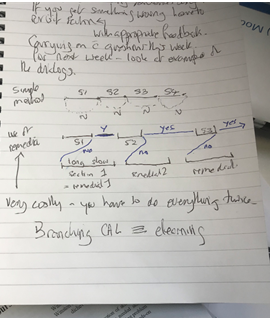 If you get something wrong have to
with appropriate feedback.
Carrying on c week
for next week - look at example
the
Simple
method
S1 S2 S3 S4
N N N N
use of
remedial
S1 Y S2 yes S3 yes
no no no
long slow
section 1
= remedial 1
remedial 2
remedial
Very costly - you have to do everything twice.
Branching CAL ≡ elearning